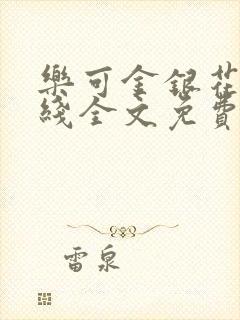 樂可金銀花
綫全文免費
雷泉